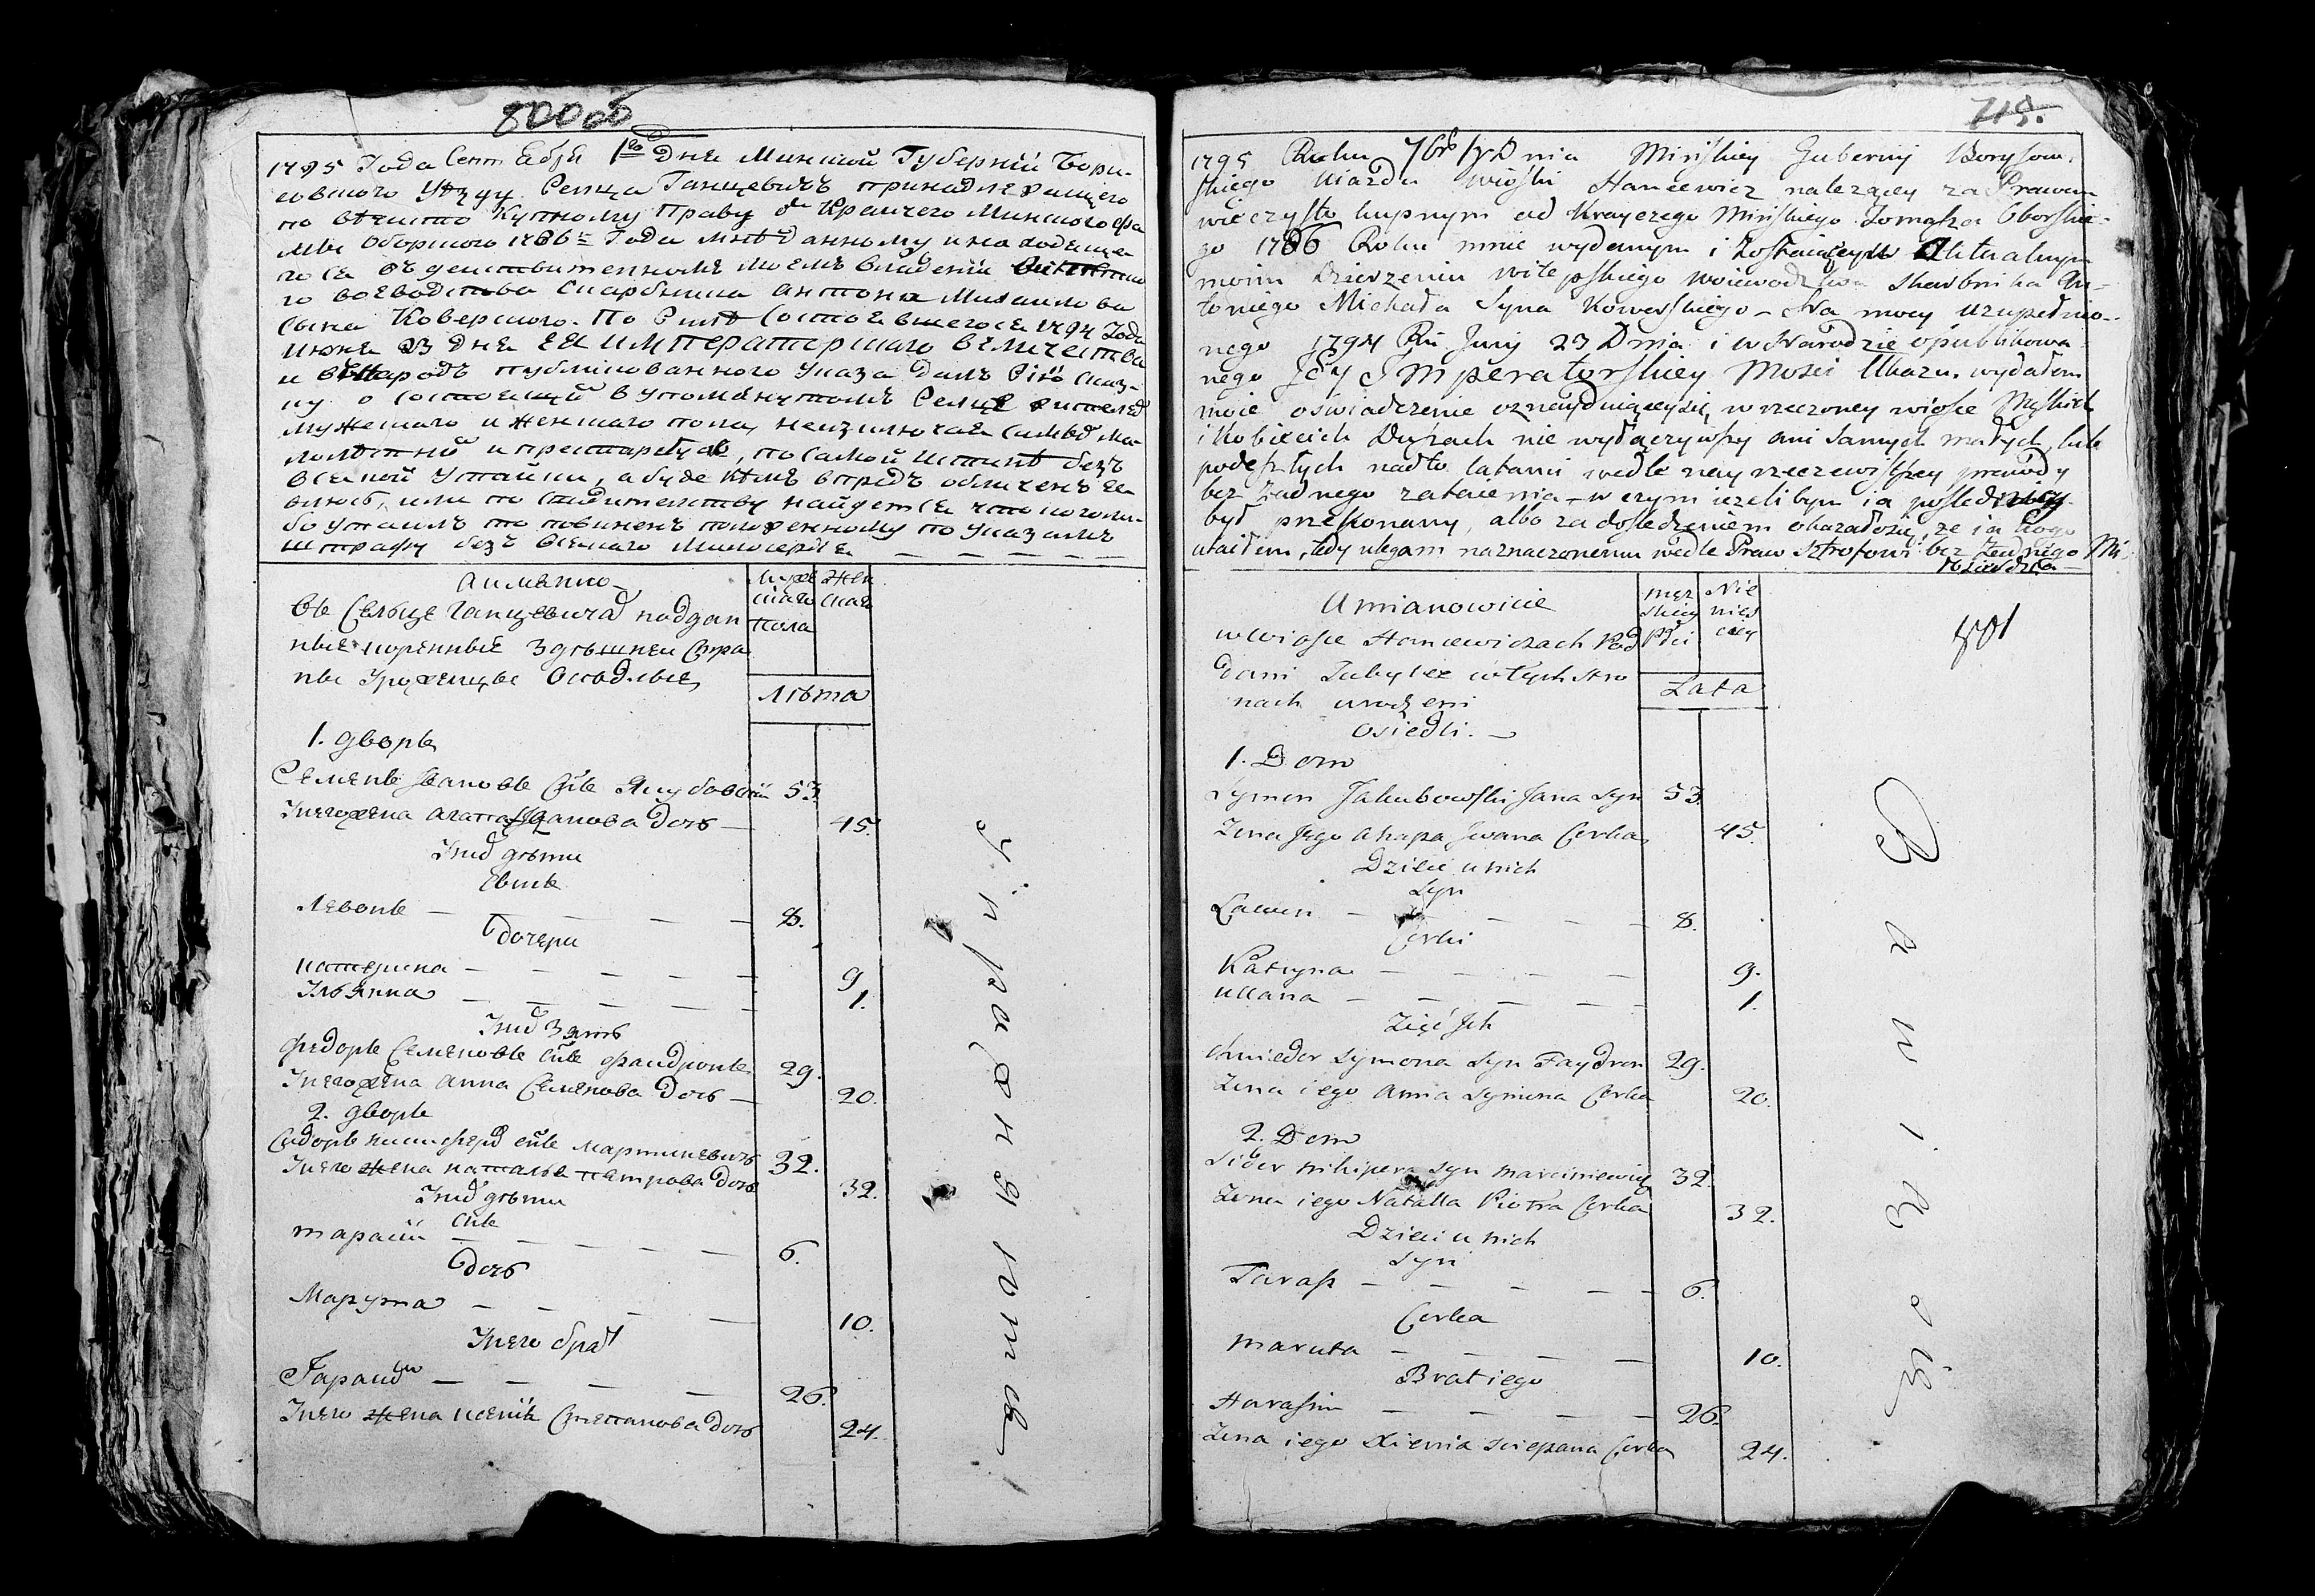 800 об
1795 Года Сентебря 1го Дня Минской Губернии Бори-
совского Уезду Сельца Ганцевичъ принадлежащего
по вечисто Купному Праву от Крайчего Минского Фа
мы Оборского 1786г Года мне данному и находяще
гося въ действительномъ моемъ владении Витепска
го воеводства Скарбника Антона Михайлова
сына Коверского. По Силе Состоявшегося 1794 Года
Июня 23 Дня ея императорскаго величества
и въ Народъ публикованного Указа далъ Сию сказ-
ку о состоящихъ в упомянутомъ Сельце жителяхъ
мужескаго и женскаго пола, неизключая самыхъ ма-
лолетныхъ и престарелыхъ, по самой истине безъ
всякой Утайки, а буде кемъ впредь обличенъ я
явлюсь, или по свидетельству найдется что кого ли-
бо утаилъ то повиненъ положенному по Указамъ
штрафу безъ всякаго милосердия
а имянно
Въ Сельце Ганцевичахъ поддан
ные коренные здешнеи Стра
ны Уроженцы Оседлые
муже
скаго
пола
жен
скаго
Лета
1. дворъ
Семенъ Ивановъ Снъ Якубовский 53.
У него жена Агапа Иванова Дочь 45.
У них дети
Сынъ
Левонъ 8.
Дочери
Катерина 9
Ульянна 1.
У них Зять
Федоръ Семеновъ снъ Фандронъ 29.
У него жена Анна Семенова Дочь 20.
2. дворъ
Сидоръ Никифера снъ Мартиневичъ 32.
У него жена Наталья Петрова Дочь 32.
У них дети
снъ
тараси 6.
Дочь
Марута 10.
У него брат
Гарасим 26.
У него жена Ксения Степанова Дочь 24.
715.
1795 Roku 7br 1go Dnia Minskiey Gubernij Borysow.
skiego Uiazdu wioski Hancewicz należącey za Prawem
wieczysto kupnym od Krayczego Mińskiego Tomasza Oborskie-
go 1786 Roku mnie wydanym i zostaiących Aktualnym
moim Dzierzeniu witepskiego woiewodztwa Skarbnika An-
toniego Michała Syna Kowerskiego - Na mocy uzupełnio-
nego 1794 Ru Junij 23 Dnia i w Narodzie opublikowa
nego Jey Imperatorskiey Mości Ukazu. wydałem
moie oświadczenie o znayduiącychsię w rzeczoney wiosce Męskich
i Kobiecich Duszach nie wyłączywszy ani samych małych, lub
podeszłych nadto latami wedle nayrzeczewistszey prawdy
bez żadnego zataienia - w czym ieżelibym ia poslednicy
był przekonany, albo za dosledzeniem okazałosię, że ia kogo
utaiłem, tedy ulegam naznaczonemu wedle Praw Sztrofowi bez żadnego Mi-
łosierdzia
Amianowicie
w wiosce Hancewiczach Pod
dani Tubylcе w tych stro
nach urodzeni
osiedli.
męz
skiey
płci
Nie
wies
ciey
Lata
801
1. Dom
Symon Jakubowski Jana syn 53
Zona Jego Ahapa Iwana Corka 45.
Dzieci u nich
Syn
Lawon 8.
Corki
Katryna 9.
Ullana 1.
Zięć Ich
Chwiedor Symona syn Faydron 29.
Zona iego Anna Symona Corka 20.
2. Dom
Sidor Nikipera syn Marciniewicz 32.
Zona iego Natalla Piotra Corka 32.
Dzieci u nich
syn
Tarass 6.
Corka
Maruta 10.
Brat iego
Harasim 26.
Zona iego Xienia Sciepana Corka 24.